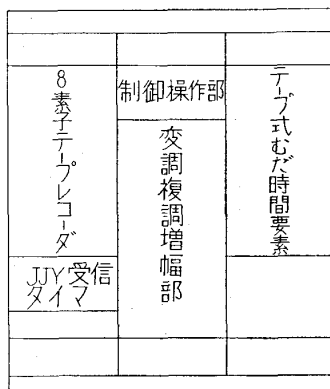 8素子テープレコーダ
JJY受信
タイマ
制御操作部
変調複調増幅部
テープ式むだ時間要素